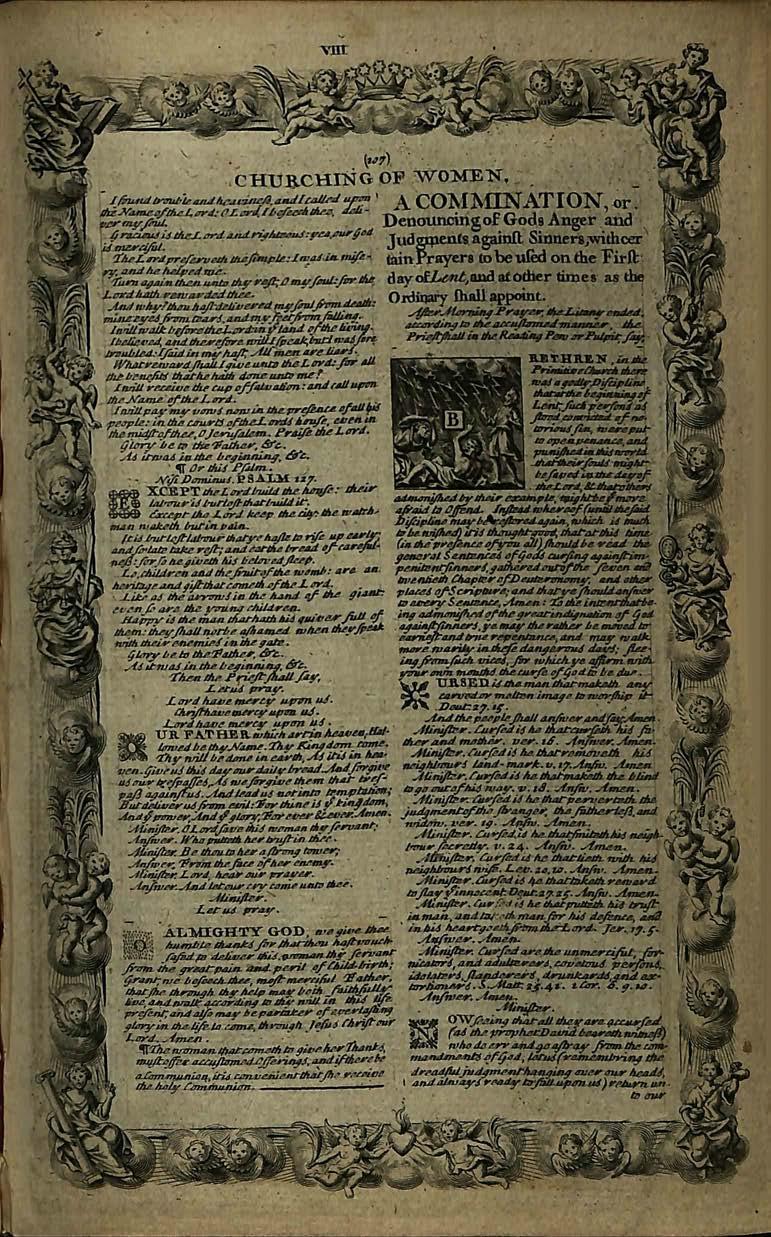 VIII
(207)
CHURCHING OF WOMEN.
I found trouble and heavineſs, and I called upon
the Name of the Lord: O Lord, I beſeech thee, deli-
ver my ſoul.
Gracious is the Lord and righteous: yea, our God
is merciful.
The Lord preſerveth the ſimple: I was in miſe-
ry, and he helped me.
Turn again then unto thy reſt, O my ſoul: for the
Lord hath rewarded thee.
And why? thou haſt delivered my ſoul from death:
mine eyes from tears, and my feet from falling.
I will walk before the Lord: in yͤ land of the living.
I believed, and therefore will I ſpeak, but I was ſore
troubled: I ſaid in my haſt, All men are liars.
What reward ſhall I give unto the Lord: for all
the benefits that he hath done unto me?
I will receive the cup of ſalvation: and call upon
the Name of the Lord.
I will pay my vows now in the preſence of all his
people: in the courts of the Lords houſe, even in
the midſt of thee, O Jeruſalem. Praiſe the Lord.
Glory be to the Father, &c.
As it was in the beginning, &c.
¶ Or this Pſalm.
Niſi Dominus. PSALM 127.
EXCEPT the Lord build the houſe: their
labour is but loſt that build it.
Except the Lord keep the city: the watch-
man waketh but in vain.
It is but loſt labour that ye haſte to riſe up early,
and ſo late take reſt, and eat the bread of careful-
neſs: for ſo he giveth his beloved ſleep.
Lo, children and the fruit of the womb: are an
heritage and gift that cometh of the Lord.
Like as the arrows in the hand of the giant:
even ſo are the young children.
Happy is the man that hath his quiver full of
them: they ſhall not be aſhamed when they ſpeak
with their enemies in the gate.
Glory be to the Father, &c.
As it was in the beginning, &c.
Then the Prieſt ſhall ſay,
Let us pray.
Lord have mercy upon us.
Chriſt have mercy upon us.
Lord have mercy upon us.
OUR FATHER which art in heaven, Hal-
lowed be thy Name. Thy Kingdom come.
Thy will be done in earth, As it is in hea-
ven. Give us this day our daily bread. And forgive
us our treſpaſſes, As we forgive them that treſ-
paſs againſt us. And lead us not into temptation;
But deliver us from evil: For thine is yͤ kingdom,
And yͤ power, And yͤ glory, For ever & ever. Amen.
Miniſter. O Lord ſave this woman thy ſervant;
Anſwer. Who putteth her truſt in thee.
Miniſter. Be thou to her a ſtrong tower;
Anſwer. From the face of her enemy.
Miniſter. Lord, hear our prayer.
Anſwer. And let our cry come unto thee.
Miniſter.
Let us pray.
O ALMIGHTY GOD, we give thee
humble thanks for that thou haſt vouch-
ſafed to deliver this woman thy ſervant
from the great pain and peril of Child-birth;
Grant, we beſeech thee, moſt merciful Father,
that ſhe through thy help may both faithfully
live, and walk according to thy will in this life
preſent, and alſo may be partaker of everlaſting
glory in the life to come, through Jeſus Chriſt our
Lord. Amen.
¶ The woman that cometh to give her Thanks,
muſt offer accuſtomed Offerings; and if there be
a Communion, it is convenient that ſhe receive
the holy Communion.
A COMMINATION, or
Denouncing of Gods Anger and
Judgments againſt Sinners, with cer
tain Prayers to be uſed on the Firſt
day of Lent, and at other times as the
Ordinary ſhall appoint.
After Morning Prayer, the Litany ended,
according to the accuſtomed manner, the
Prieſt ſhall in the Reading Pew or Pulpit, ſay,
BRETHREN, in the
Primitive Church there
was a godly Diſcipline,
that at the beginning of
Lent, ſuch perſons as
ſtood convicted of no-
torious ſin, were put
to open penance, and
puniſhed in this world
that their ſouls might
be ſaved in the day of
the Lord, & that others
admoniſhed by their example, might be yͤ more
afraid to Offend. Inſtead whereof (until the ſaid
Diſcipline may be reſtored again, which is much
to be wiſhed) it is thought good, that at this time
(in the preſence of you all) ſhould be read the
general Sentences of Gods curſing againſt im-
penitent ſinners, gathered out of the ſeven and
twentieth Chapter of Deuteronomy, and other
places of Scripture; and that ye ſhould anſwer
to every Sentence, Amen: To the intent that be-
ing admoniſhed of the great indignation of God
againſt ſinners, ye may the rather be moved to
earneſt and true repentance, and may walk
more warily in theſe dangerous days; flee-
ing from ſuch vices, for which ye affirm with
your own mouths the curſe of God to be due.
CURSED is the man that maketh any
carved or molten image to worſhip it
Deut. 27. 15.
And the people ſhall anſwer and ſay, Amen
Miniſter. Curſed is he that curſeth his fa-
ther and mother. ver. 16. Anſwer. Amen.
Miniſter. Curſed is he that removeth his
neighbours land-mark. v. 17. Anſw. Amen
Miniſter. Curſed is he that maketh the blind
to go out of his way. v. 18. Anſw. Amen.
Miniſter. Curſed is he that perverteth the
judgment of the ſtranger, the fatherleſs, and
widow. ver. 19. Anſw. Amen.
Miniſter. Curſed is he that ſmiteth his neigh-
bour ſecretly. v. 24. Anſw. Amen.
Miniſter. Curſed is he that lieth with his
neighbours wife. Lev. 20, 10. Anſw. Amen
Miniſter. Curſed is he that taketh reward
to ſlay yͤ innocent. Deut. 27. 25. Anſw. Amen.
Miniſter. Curſed is he that putteth his truſt
in man, and taketh man for his defence, and
in his heart goeth from the Lord. Jer. 17. 5.
Anſwer. Amen.
Miniſter. Curſed are the unmerciful, for-
nicators, and adulterers, covetous perſons,
idolaters, ſlanderers, drunkards, and ex-
tortioners. S. Matt. 25. 41. 1 Cor. 6. 9. 10.
Anſwer. Amen.
Miniſter.
NOW ſeeing that all they are accurſed
(as the prophet David beareth witneſs)
who do err and go aſtray from the com-
mandments of God, let us (remembring the
dreadful judgment hanging over our heads,
and always ready to fall upon us) return un-
to our